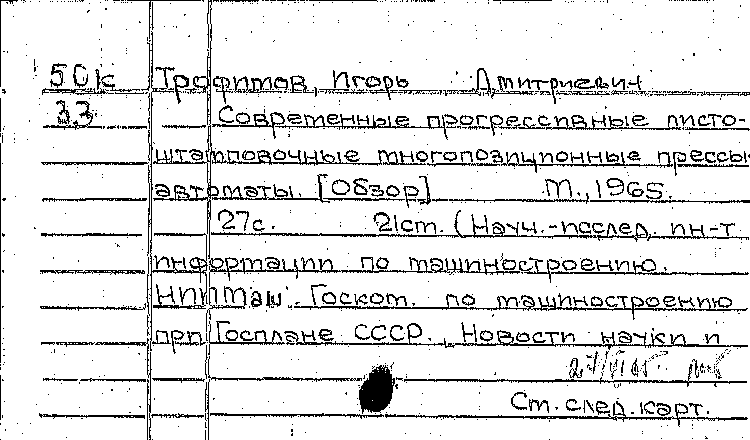 50к Трофимов, Игорь Дмитриевич
33 Современные прогрессивные листо-
штамповочные многопозиционные прессы
автоматы. [Обзор] М., 1965.
27с. 21см. (Науч.-исслед. ин-т
информации по машиностроению.
НИИМаш. Госком. по машиностроению
при Госплане СССР. Новости науки и
Ст. след. карт.